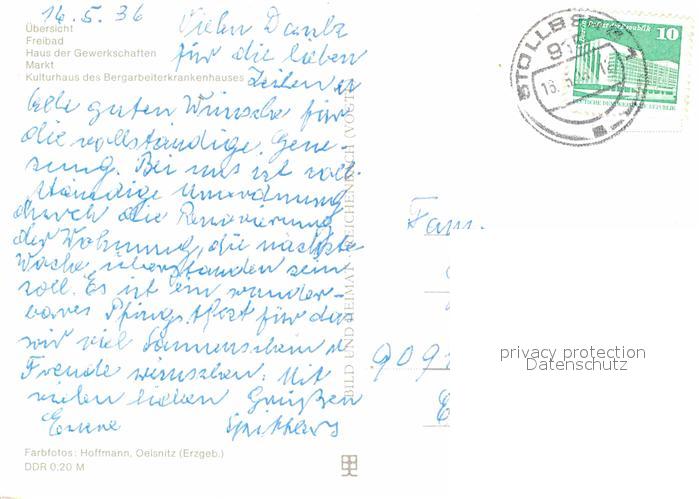 16.5.86
Übersicht
Freibad
Haus der Gewerkschaften
Markt
Kulturhaus des Bergarbeiterkrankenhauses
Vielen Dank
für die lieben
Zeilen u
alle guten Wünsche für
die vollständige Gene-
sung. Bei uns ist voll-
ständige Unordnung
durch die Renovierung
der Wohnung, die nächste
Woche überstanden sein
soll. Es ist ein wunder-
bares Pfingstfest für das
wir viel Sonnenschein u
Freude wünschen. Mit
vielen lieben Grüßen
Eure
Farbfotos: Hoffmann, Oelsnitz (Erzgeb.)
DDR 0,20 M
BILD UND HEIMAT REICHENBACH (VOGTL
STOLLBERG
10
DEUTSCHE DEMOKRATISCHE REPUBLIK
Fam.
909
privacy protection
Datenschutz